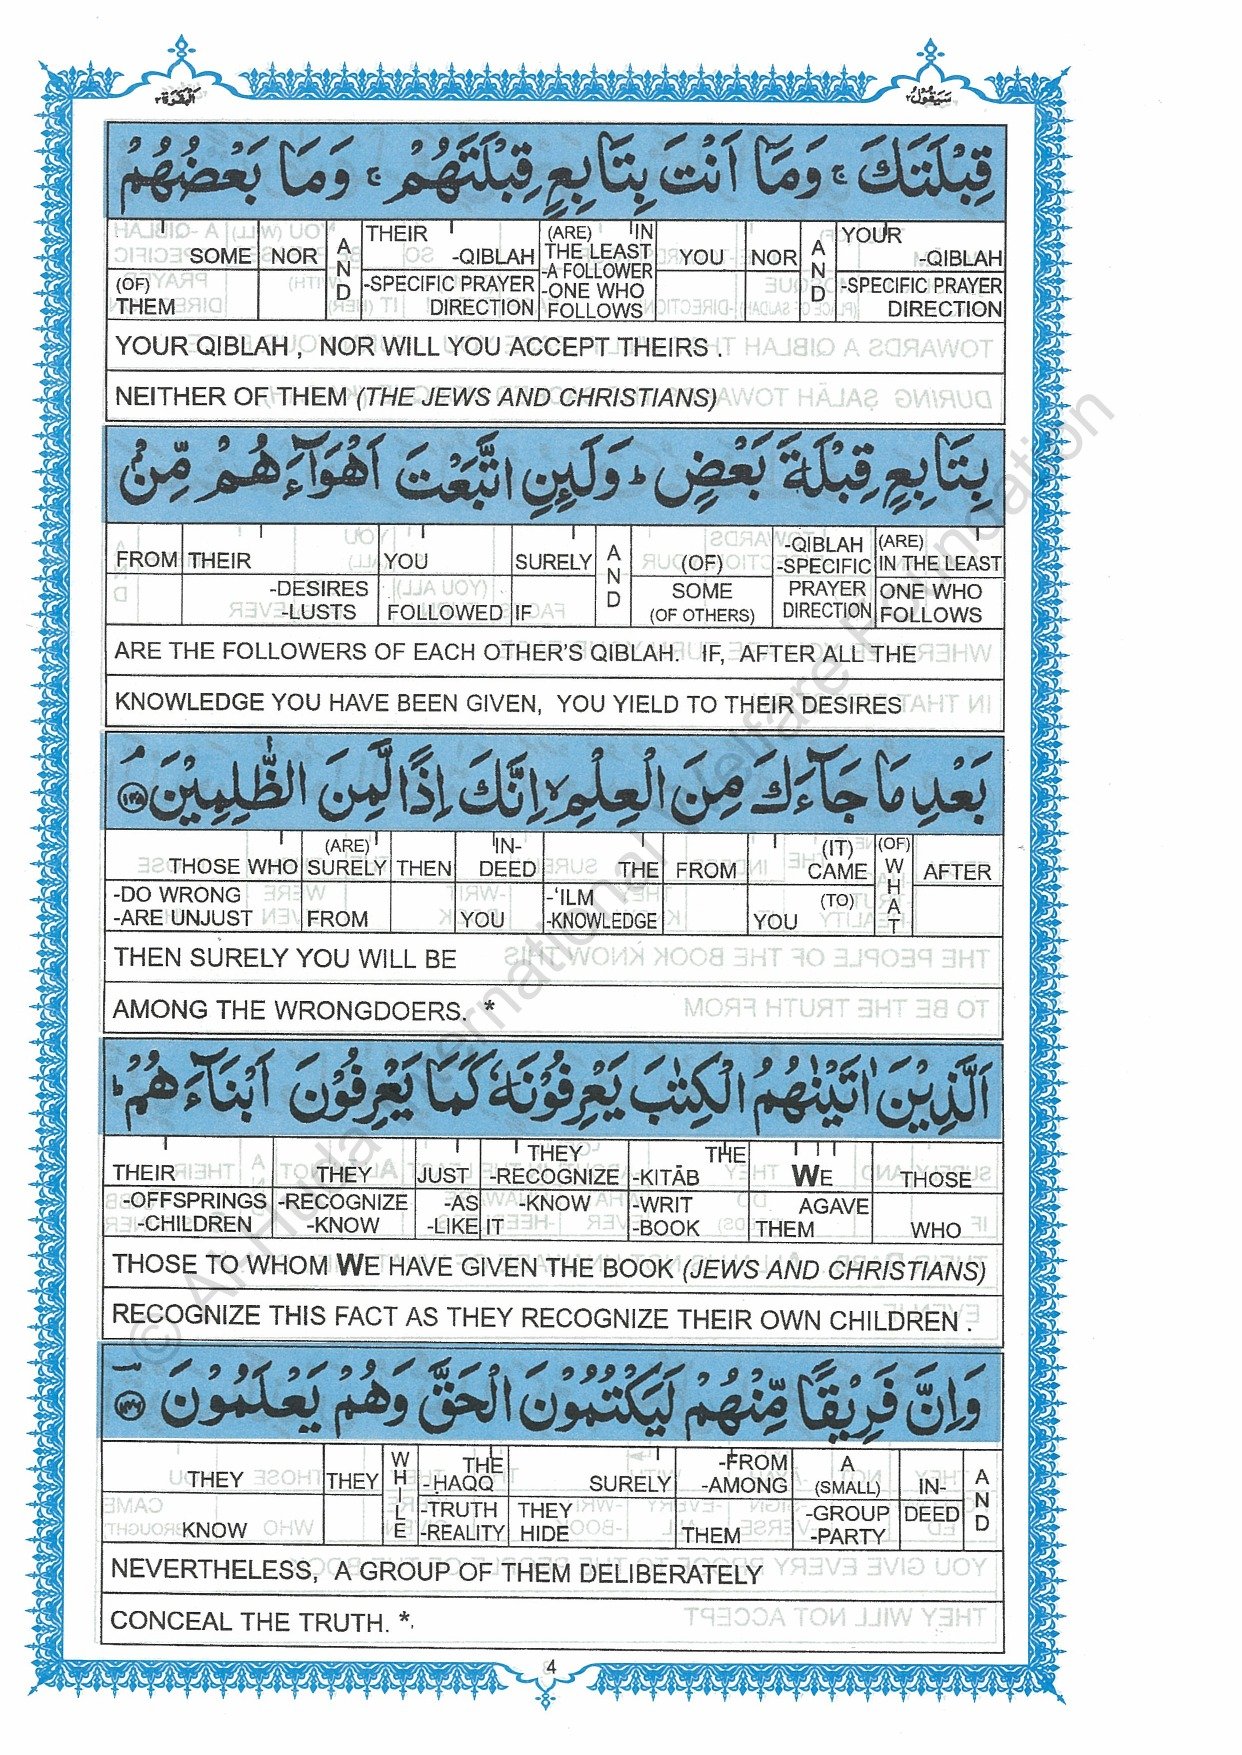 البقرة ٢
سيقول ٢
قِبْلَتَكَ ۚ وَمَآ اَنْتَ بِتَابِعٍ قِبْلَتَهُمْ ۚ وَمَا بَعْضُهُمْ
SOME NOR AND THEIR -QIBLAH (ARE) IN THE LEAST -A FOLLOWER -ONE WHO FOLLOWS YOU NOR AND YOUR -QIBLAH
(OF) THEM -SPECIFIC PRAYER DIRECTION -SPECIFIC PRAYER DIRECTION
YOUR QIBLAH , NOR WILL YOU ACCEPT THEIRS .
NEITHER OF THEM (THE JEWS AND CHRISTIANS)
بِتَابِعٍ قِبْلَةَ بَعْضٍ ؕ وَلَىِٕنِ اتَّبَعْتَ اَهْوَآءَهُمْ مِّنْۢ
FROM THEIR YOU SURELY AND (OF) -QIBLAH -SPECIFIC (ARE) IN THE LEAST
-DESIRES -LUSTS FOLLOWED IF SOME (OF OTHERS) PRAYER DIRECTION ONE WHO FOLLOWS
ARE THE FOLLOWERS OF EACH OTHER'S QIBLAH. IF, AFTER ALL THE
KNOWLEDGE YOU HAVE BEEN GIVEN, YOU YIELD TO THEIR DESIRES
بَعْدِ مَا جَآءَكَ مِنَ الْعِلْمِ ۙ اِنَّكَ اِذًا لَّمِنَ الظّٰلِمِيْنَ ۘ ١٤٥
THOSE WHO (ARE) SURELY THEN IN- DEED THE FROM (IT) CAME (OF) WHAT AFTER
-DO WRONG -ARE UNJUST FROM YOU -'ILM -KNOWLEDGE YOU (TO)
THEN SURELY YOU WILL BE
AMONG THE WRONGDOERS. *
اَلَّذِيْنَ اٰتَيْنٰهُمُ الْكِتٰبَ يَعْرِفُوْنَهٗ كَمَا يَعْرِفُوْنَ اَبْنَآءَهُمْ ؕ
THEIR THEY JUST THEY -RECOGNIZE THE -KITĀB WE THOSE
-OFFSPRINGS -CHILDREN -RECOGNIZE -KNOW -AS -LIKE -KNOW IT -WRIT -BOOK AGAVE THEM WHO
THOSE TO WHOM WE HAVE GIVEN THE BOOK (JEWS AND CHRISTIANS)
RECOGNIZE THIS FACT AS THEY RECOGNIZE THEIR OWN CHILDREN .
وَاِنَّ فَرِيْقًا مِّنْهُمْ لَيَكْتُمُوْنَ الْحَقَّ وَهُمْ يَعْلَمُوْنَ ١٤٦
THEY THEY WHILE THE -ḤAQQ SURELY -FROM -AMONG A (SMALL) IN- AND
KNOW -TRUTH -REALITY THEY HIDE THEM -GROUP -PARTY DEED
NEVERTHELESS, A GROUP OF THEM DELIBERATELY
CONCEAL THE TRUTH. *
4
© Al-Huda International Welfare Foundation